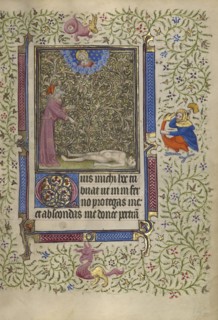 Quis michi hoc tri
buat ut in infer
no protegas me
et abscondas me donec